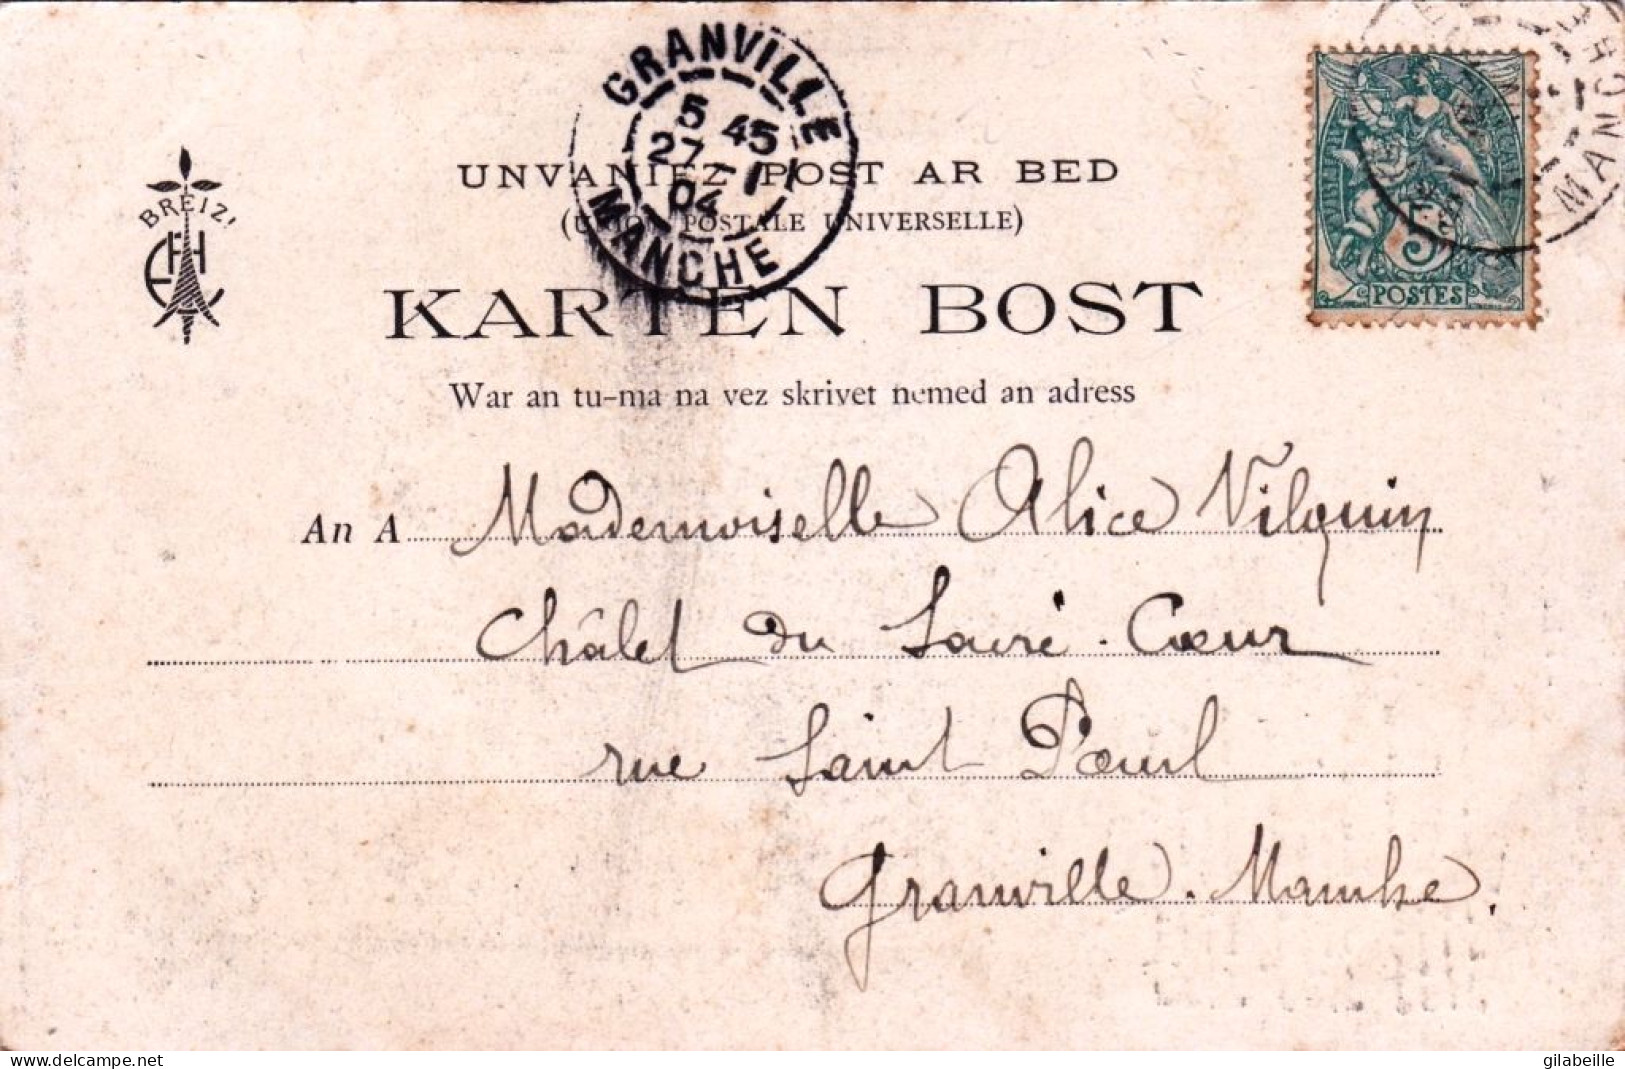 GRANVILLE
5 45
27 -1
04
MANCHE
MANCHE
POSTES
5
BREIZ!
UNVANIEZ POST AR BED
(UNION POSTALE UNIVERSELLE)
KARTEN BOST
War an tu-ma na vez skrivet nemed an adress
An A Mademoiselle Alice Vilquin
Châlet du Sacré-Cœur
rue Saint Paul
Granville. Manche.
delcampe.net
gilabeille